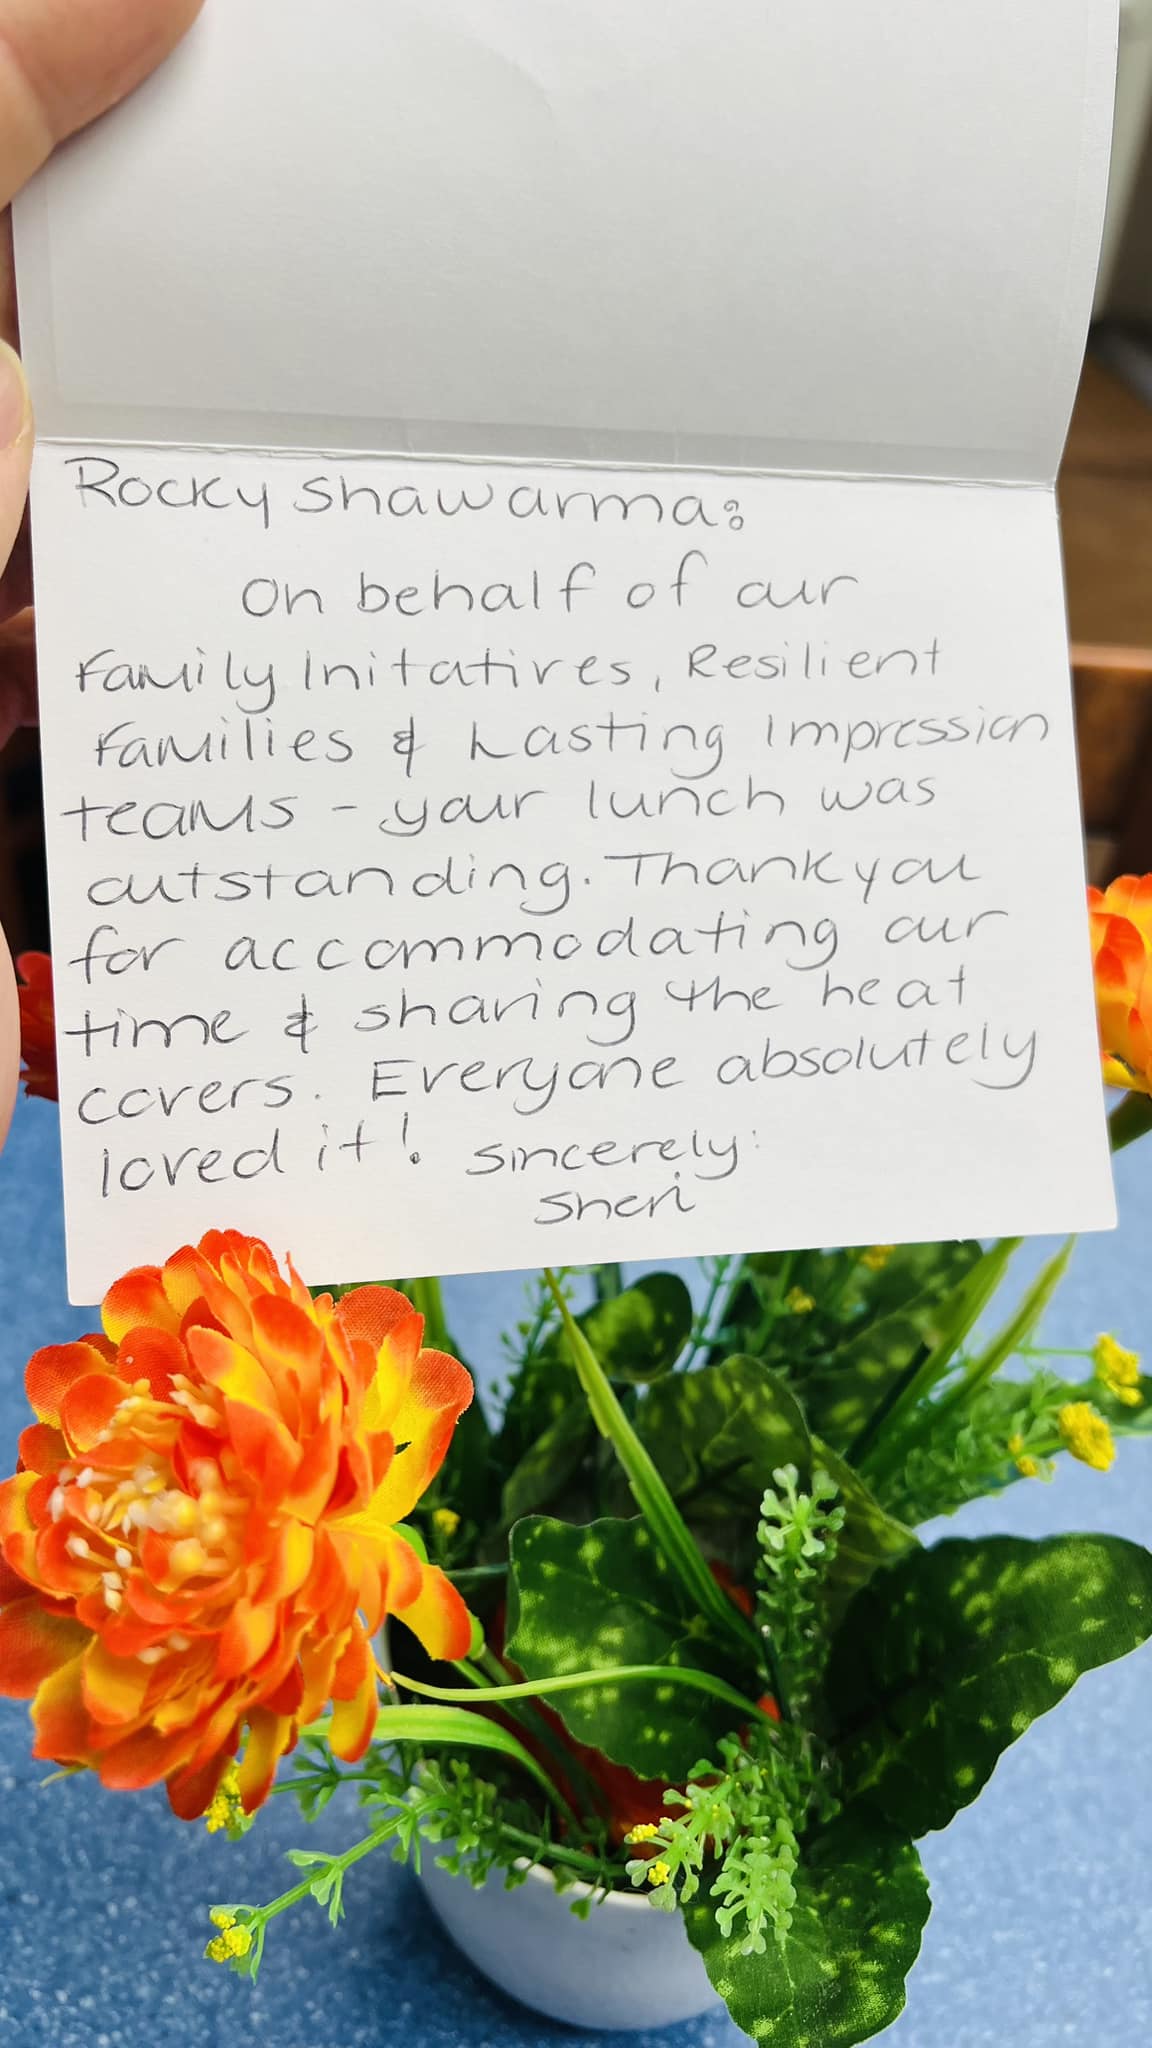 Rocky Shawarma:
On behalf of our
Family Initatives, Resilient
Families & Lasting Impression
teams - your lunch was
outstanding. Thank you
for accommodating our
time & sharing the heat
covers. Everyone absolutely
loved it! Sincerely:
Sheri